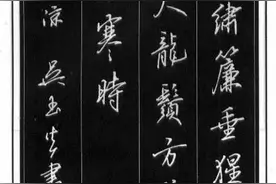 繡簾垂猩
龍鬚方
寒時
涼 吳玉生書